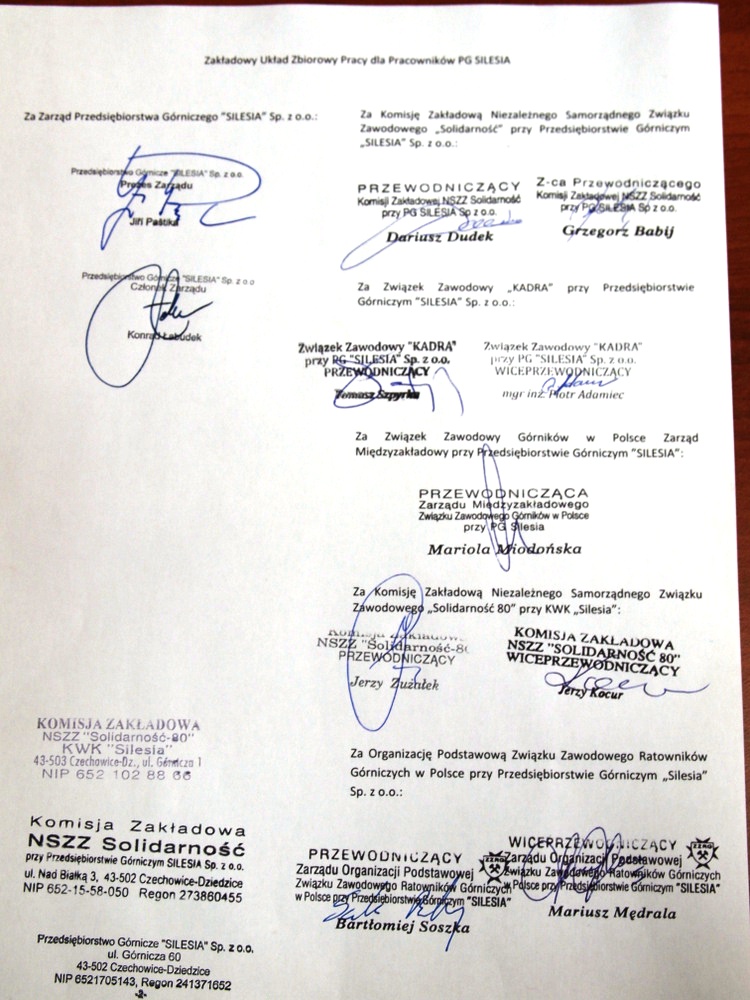 Zakładowy Układ Zbiorowy Pracy dla Pracowników PG SILESIA
Za Zarząd Przedsiębiorstwa Górniczego "SILESIA" Sp. z o.o.:
Przedsiębiorstwo Górnicze "SILESIA" Sp. z o.o.
Prezes Zarządu
Jiří Pastika
Przedsiębiorstwo Górnicze "SILESIA" Sp. z o.o
Członek Zarządu
Konrad Łabudek
Za Komisję Zakładową Niezależnego Samorządnego Związku
Zawodowego „Solidarność" przy Przedsiębiorstwie Górniczym
„SILESIA" Sp. z o.o.:
PRZEWODNICZĄCY
Komisji Zakładowej NSZZ Solidarność
przy PG SILESIA Sp z o.o.
Dariusz Dudek
Z-ca Przewodniczącego
Komisji Zakładowej NSZZ Solidarność
przy PG SILESIA Sp z o.o.
Grzegorz Babij
Za Związek Zawodowy „KADRA" przy Przedsiębiorstwie
Górniczym "SILESIA" Sp. z o.o.:
Związek Zawodowy "KADRA"
przy PG "SILESIA" Sp. z o.o.
PRZEWODNICZĄCY
Tomasz Szpyrka
Związek Zawodowy "KADRA"
przy PG "SILESIA" Sp. z o.o.
WICEPRZEWODNICZĄCY
mgr inż. Piotr Adamiec
Za Związek Zawodowy Górników w Polsce Zarząd
Międzyzakładowy przy Przedsiębiorstwie Górniczym "SILESIA":
PRZEWODNICZĄCA
Zarządu Międzyzakładowego
Związku Zawodowego Górników w Polsce
przy PG Silesia
Mariola Miodońska
Za Komisję Zakładową Niezależnego Samorządnego Związku
Zawodowego „Solidarność 80" przy KWK „Silesia":
Komisja Zakładowa
NSZZ "Solidarność-80
PRZEWODNICZĄCY
Jerzy Zużałek
KOMISJA ZAKŁADOWA
NSZZ "SOLIDARNOŚĆ 80"
WICEPRZEWODNICZĄCY
Jerzy Kocur
KOMISJA ZAKŁADOWA
NSZZ "Solidarność-80"
KWK "Silesia"
43-503 Czechowice-Dz., ul. Górnicza 1
NIP 652 102 88 66
Za Organizację Podstawową Związku Zawodowego Ratowników
Górniczych w Polsce przy Przedsiębiorstwie Górniczym „Silesia"
Sp. z o.o.:
Komisja Zakładowa
NSZZ Solidarność
przy Przedsiębiorstwie Górniczym SILESIA Sp. z o.o.
ul. Nad Białką 3, 43-502 Czechowice-Dziedzice
NIP 652-15-58-050 Regon 273860455
PRZEWODNICZĄCY
Zarządu Organizacji Podstawowej
Związku Zawodowego Ratowników Górniczych
w Polsce przy Przedsiębiorstwie Górniczym "SILESIA"
Bartłomiej Soszka
WICEPRZEWODNICZĄCY
Zarządu Organizacji Podstawowej
Związku Zawodowego Ratowników Górniczych
w Polsce przy Przedsiębiorstwie Górniczym "SILESIA"
Mariusz Mędrala
Przedsiębiorstwo Górnicze "SILESIA" Sp. z o.o.
ul. Górnicza 60
43-502 Czechowice-Dziedzice
NIP 6521705143, Regon 241371652
-2-